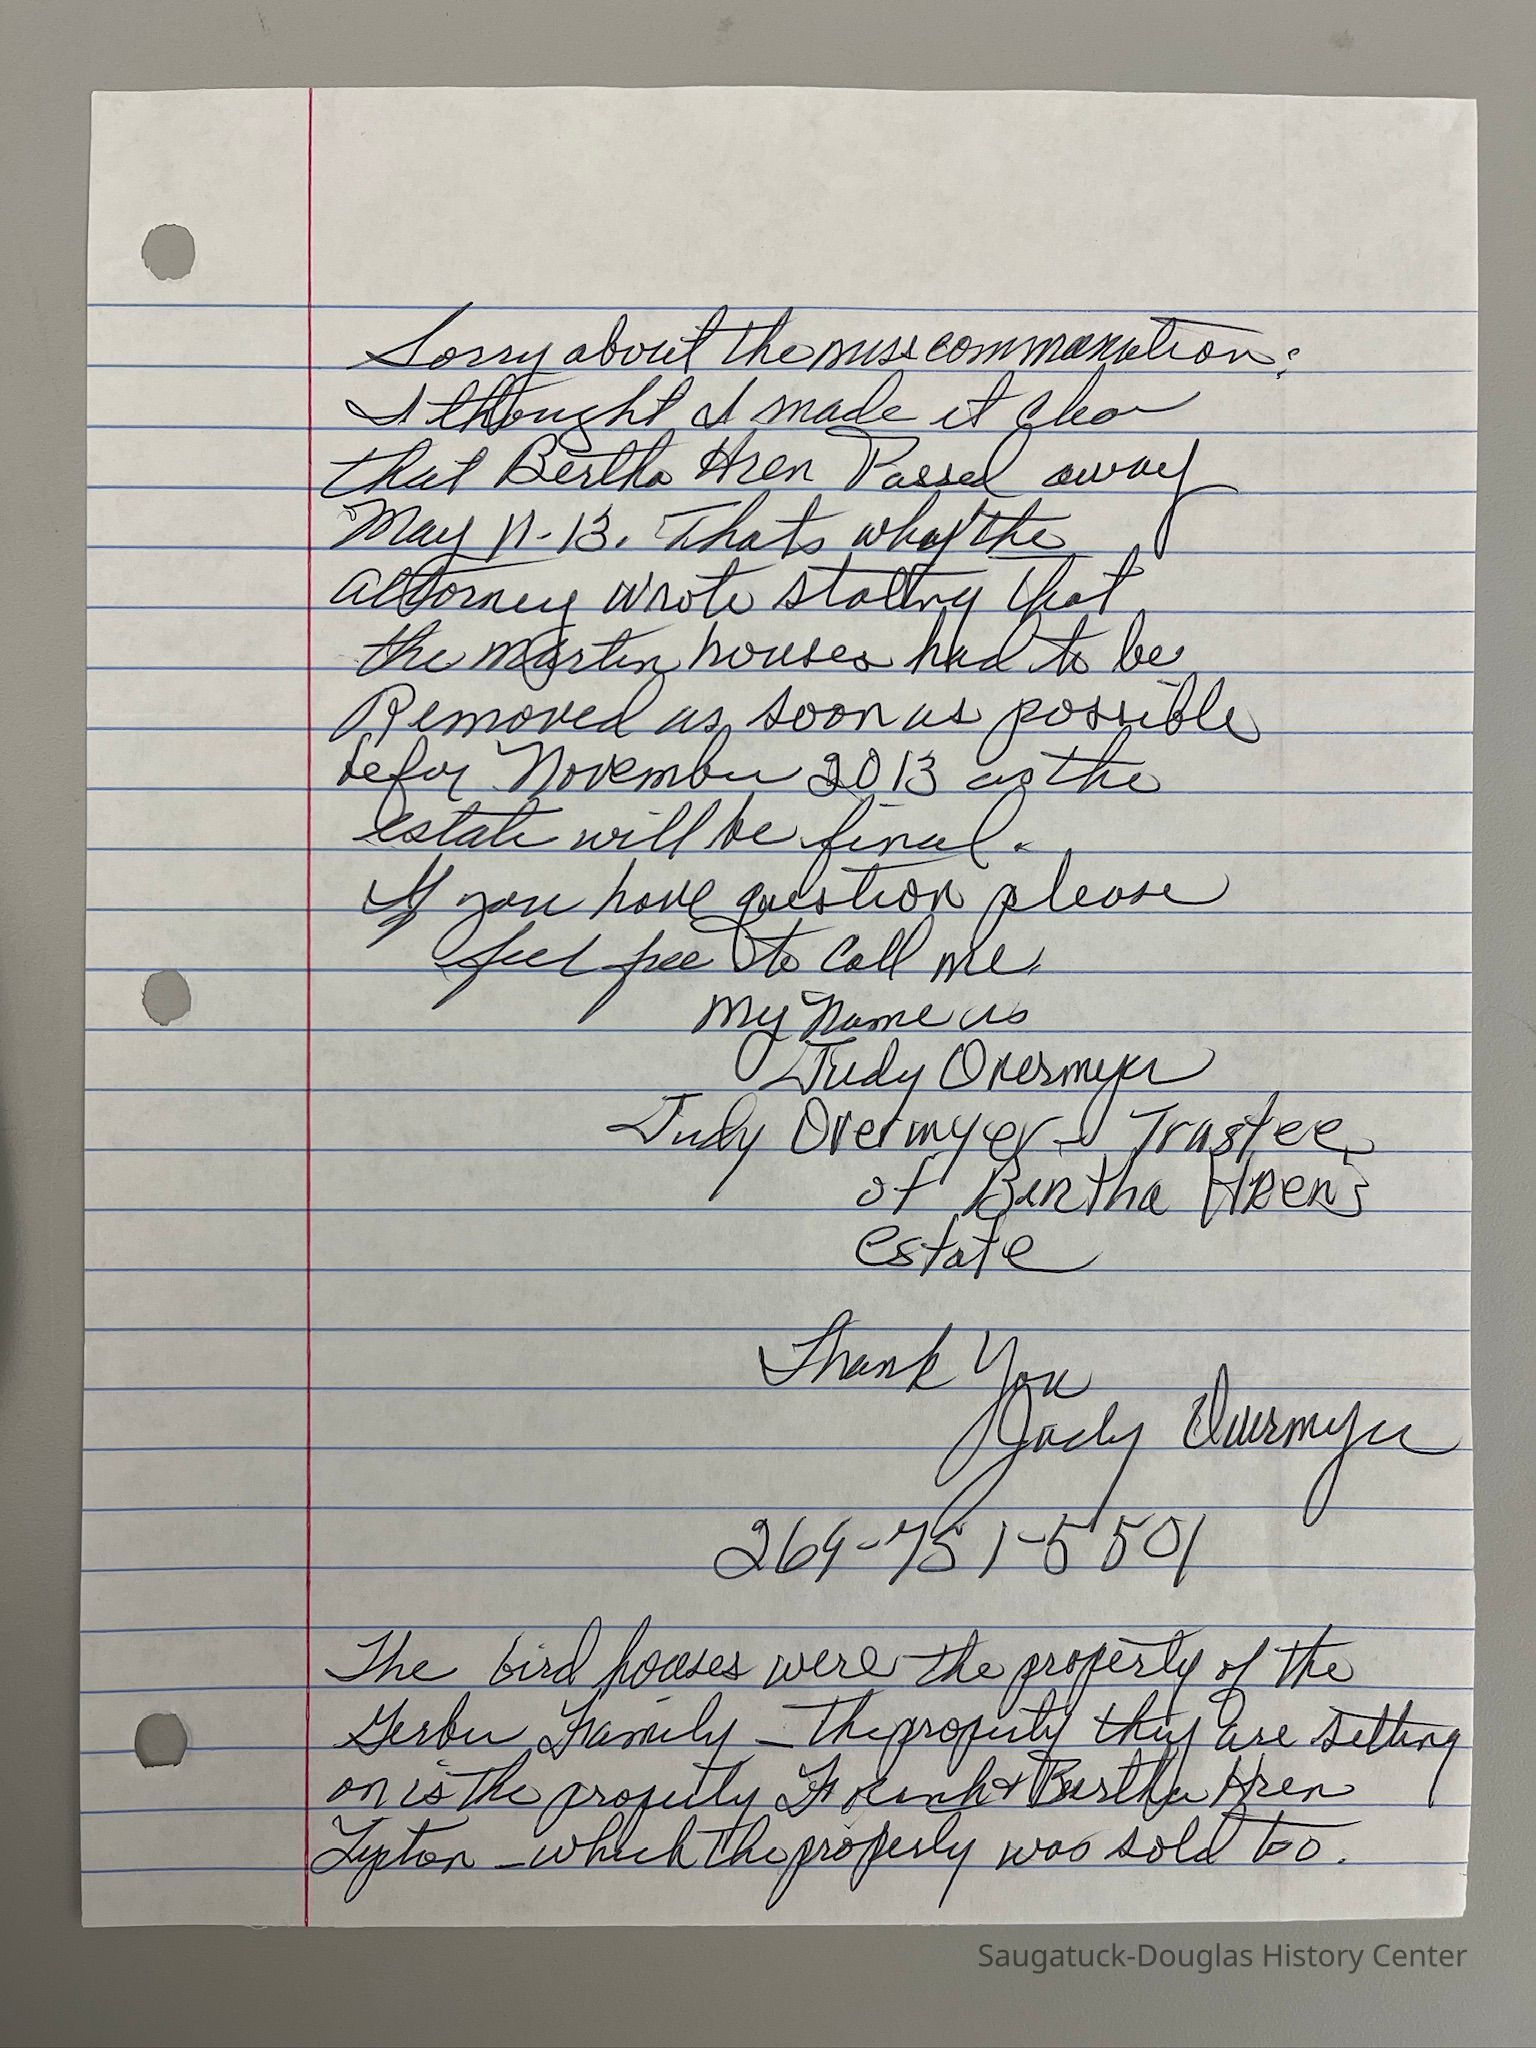 Sorry about the misscommanation:
I thought I made it clear
that Bertha Hren Passed away
May 11-13. Thats what the
attorney wrote stating that
the martin houses had to be
Removed as soon as possible
befor November 2013 as the
estate will be final.
If you have question please
feel free to call me.
My Name is
Judy Overmyer
Judy Overmyer - Trustee
of Bertha Hren's
estate
Thank You
Judy Overmyer
269-751-5501
The bird houses were the property of the
Gerber Family - The property they are setting
on is the property Frank & Bertha Hren
- which the property was sold too.
Saugatuck-Douglas History Center